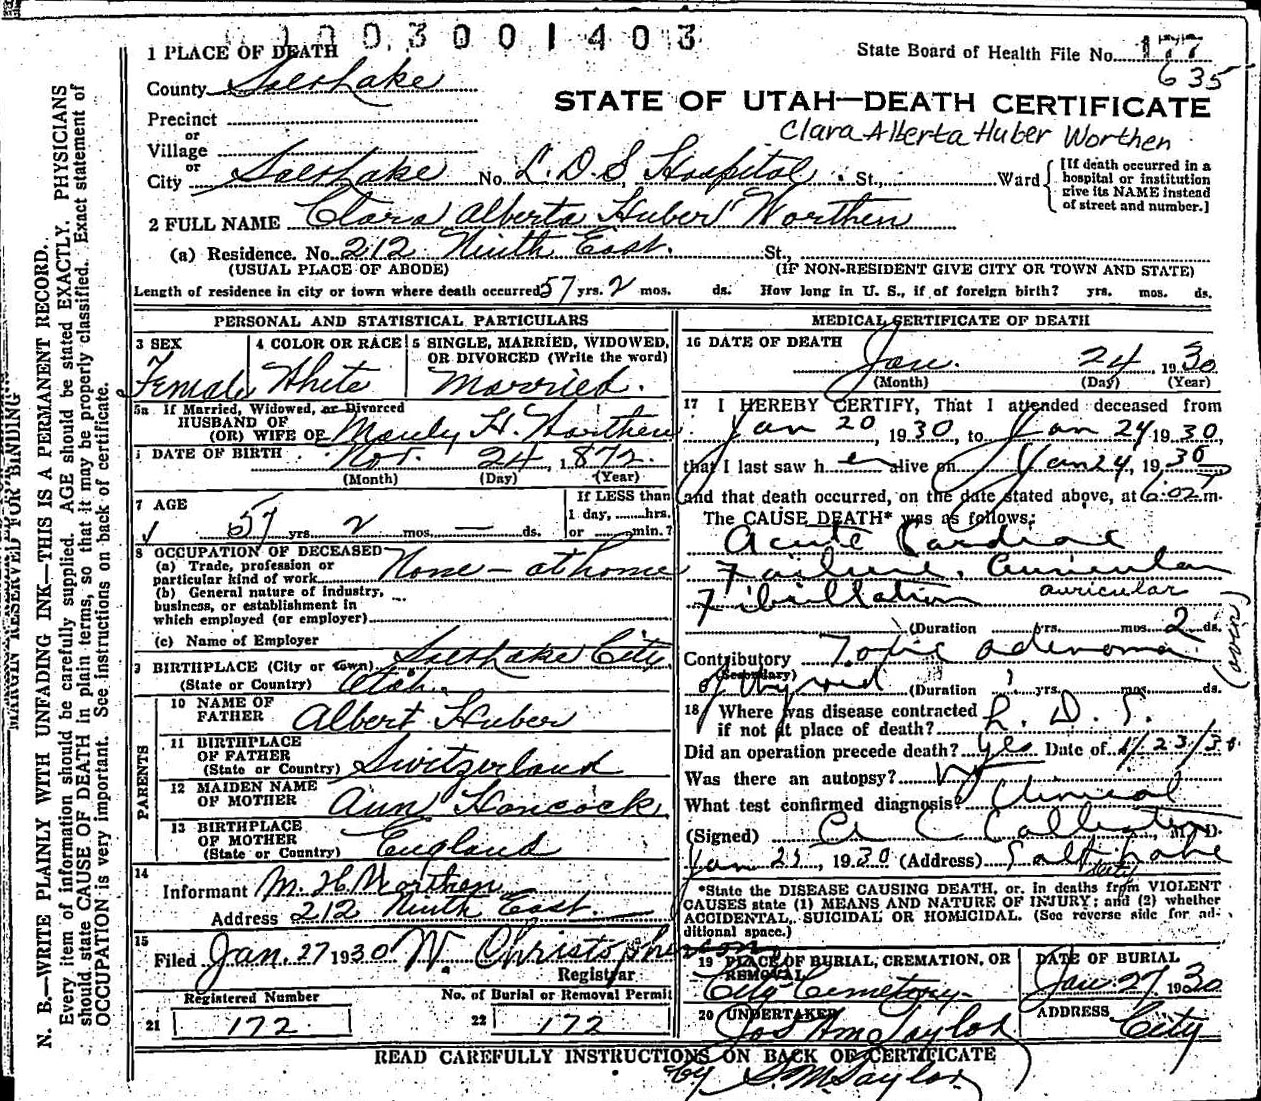 003001403
State Board of Health File No. 177
635
1 PLACE OF DEATH
County Salt Lake
STATE OF UTAH—DEATH CERTIFICATE
Clara Alberta Huber Worthen
Precinct
or
Village
or
City Salt Lake No. L.D.S. Hospital St., Ward
[If death occurred in a
hospital or institution
give its NAME instead
of street and number.]
2 FULL NAME Clara Alberta Huber Worthen
(a) Residence. No. 212 Ninth East. St.,
(USUAL PLACE OF ABODE) (IF NON-RESIDENT GIVE CITY OR TOWN AND STATE)
Length of residence in city or town where death occurred 57 yrs. 2 mos. ds. How long in U. S., if of foreign birth? yrs. mos. ds.
PERSONAL AND STATISTICAL PARTICULARS
3 SEX
Female
4 COLOR OR RACE
White
5 SINGLE, MARRIED, WIDOWED,
OR DIVORCED (Write the word)
Married.
5a If Married, Widowed, or Divorced
HUSBAND OF
(OR) WIFE OF H. Worthen
DATE OF BIRTH Nov. 24, 1872.
(Month) (Day) (Year)
7 AGE
57 yrs. 2 mos. — ds.
If LESS than
1 day, hrs.
or min.?
8 OCCUPATION OF DECEASED
(a) Trade, profession or
particular kind of work None - at home
(b) General nature of industry,
business, or establishment in
which employed (or employer)
(c) Name of Employer
9 BIRTHPLACE (City or town) Salt Lake City
(State or Country) Utah
PARENTS
10 NAME OF
FATHER Albert Huber
11 BIRTHPLACE
OF FATHER
(State or Country) Switzerland
12 MAIDEN NAME
OF MOTHER Ann Hancock
13 BIRTHPLACE
OF MOTHER
(State or Country) England
14
Informant M. H. Worthen
Address 212 Ninth East.
15
Filed Jan. 27 1930 W. Christopherson
Registrar
Registered Number
21 172
No. of Burial or Removal Permit
22 172
MEDICAL CERTIFICATE OF DEATH
16 DATE OF DEATH
Jan. 24 1930
(Month) (Day) (Year)
17 I HEREBY CERTIFY, That I attended deceased from
Jan 20, 1930, to Jan 24 1930,
that I last saw her alive on Jan 24, 1930
and that death occurred, on the date stated above, at 6:02 m.
The CAUSE DEATH* was as follows:
Acute Cardiac
Failure, Auricular
Fibrillation auricular
(Duration yrs. mos. 2 ds.
(over)
Contributory Toxic adenoma
(Secondary)
of thyroid (Duration ? yrs. mos. ds.
18 Where was disease contracted
if not at place of death? L. D. S.
Did an operation precede death? yes Date of 1/23/30
Was there an autopsy?
What test confirmed diagnosis? Clinical
(Signed) M. D.
Jan 25, 1930 (Address) Salt Lake
City
*State the DISEASE CAUSING DEATH, or, in deaths from VIOLENT
CAUSES state (1) MEANS AND NATURE OF INJURY; and (2) whether
ACCIDENTAL, SUICIDAL OR HOMICIDAL. (See reverse side for ad-
ditional space.)
19 PLACE OF BURIAL, CREMATION, OR
REMOVAL
City Cemetery
DATE OF BURIAL
Jan. 27 1930
20 UNDERTAKER
Jos Wm Taylor
ADDRESS
City
READ CAREFULLY INSTRUCTIONS ON BACK OF CERTIFICATE
by S. M. Taylor
MARGIN RESERVED FOR BINDING
N. B.—WRITE PLAINLY WITH UNFADING INK—THIS IS A PERMANENT RECORD.
Every item of information should be carefully supplied. AGE should be stated EXACTLY. PHYSICIANS
should state CAUSE OF DEATH in plain terms, so that it may be properly classified. Exact statement of
OCCUPATION is very important. See instructions on back of certificate.